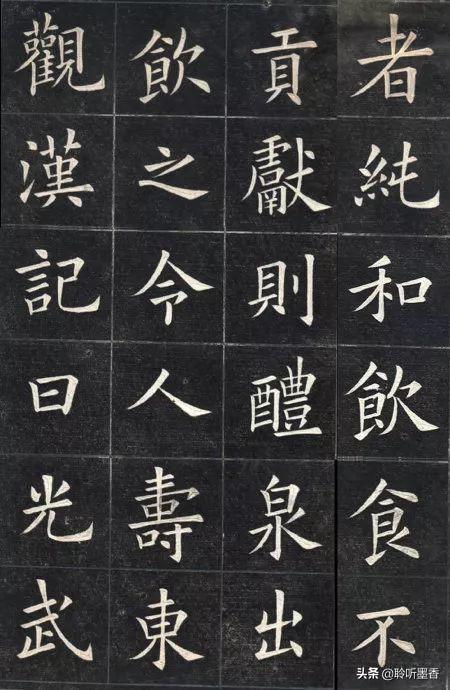 者純和飲食不
貢獻則醴泉出
飲之令人壽東
觀漢記曰光武
头条 @聆听墨香